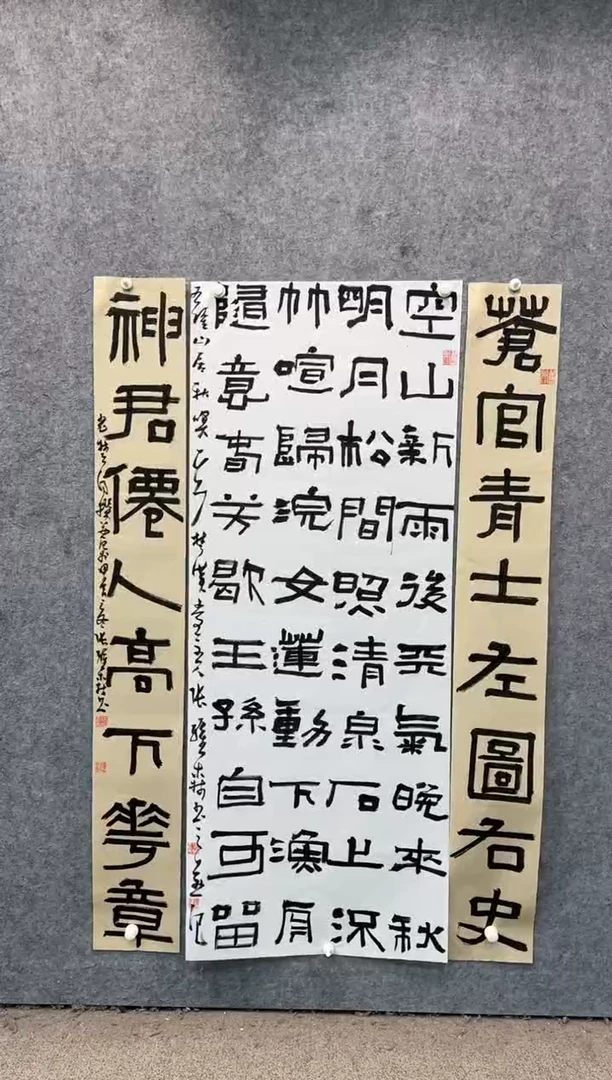 蒼官青士左圖右史
空山新雨後天氣晚來秋
明月松間照清泉石上流
竹喧歸浣女蓮動下漁舟
隨意春芳歇王孫自可留
王維山居秋暝
神君僊人高下華章